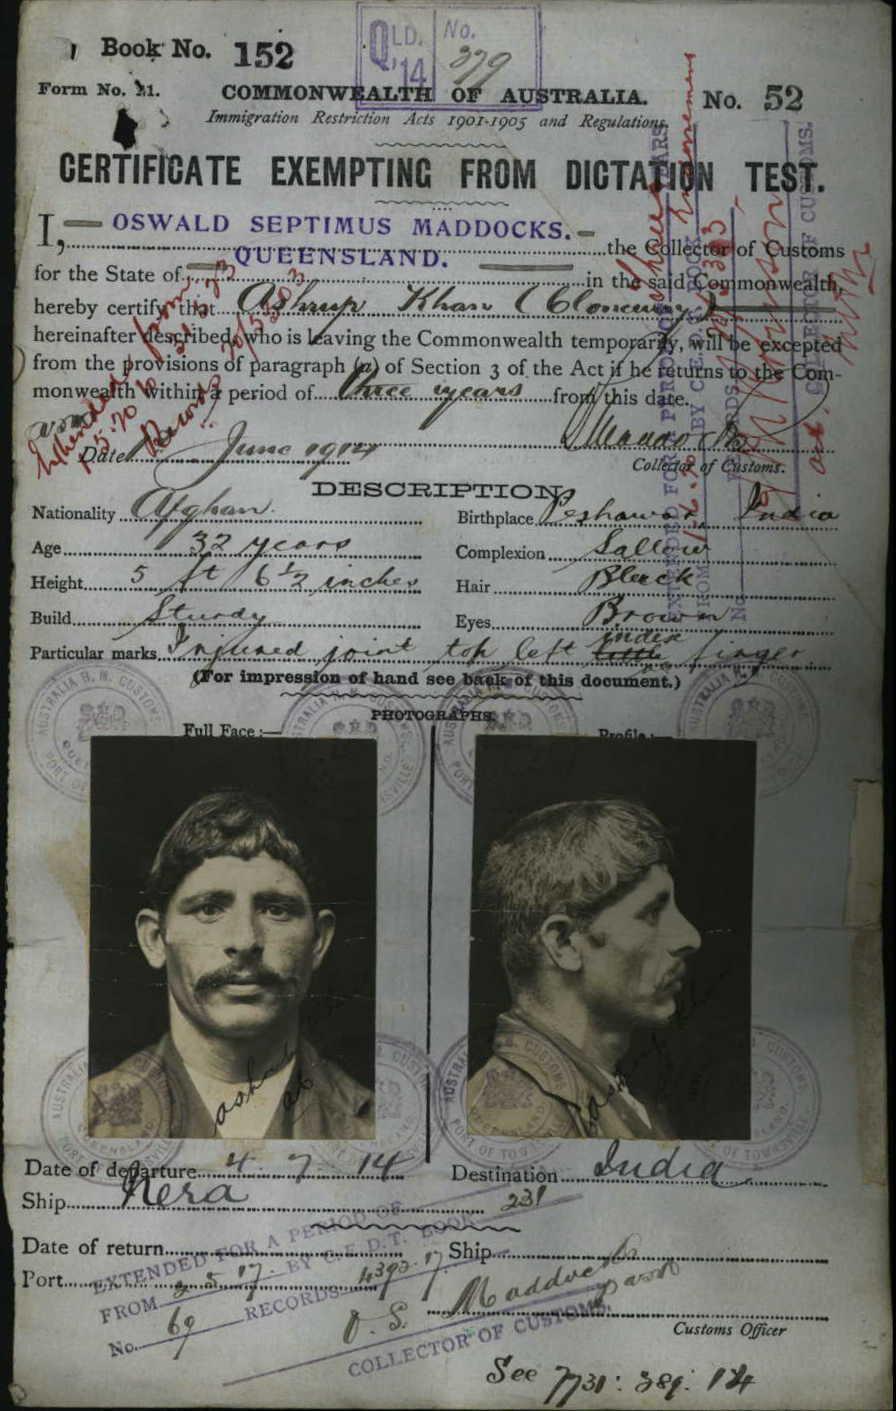 Book No. 152
QLD. No.
'14 379
Form No. 21. COMMONWEALTH OF AUSTRALIA. No. 52
Immigration Restriction Acts 1901-1905 and Regulations.
CERTIFICATE EXEMPTING FROM DICTATION TEST.
I, OSWALD SEPTIMUS MADDOCKS. the Collector of Customs
for the State of QUEENSLAND. in the said Commonwealth,
hereby certify that Ashrup Khan (Cloncurry)
hereinafter described, who is leaving the Commonwealth temporarily, will be excepted
from the provisions of paragraph (a) of Section 3 of the Act if he returns to the Com-
monwealth within a period of three years from this date.
Date June 1914
Collector of Customs.
DESCRIPTION.
Nationality Afghan. Birthplace Peshawar, India
Age 32 years Complexion Sallow
Height 5 ft 6 1/2 inches Hair Black
Build Sturdy Eyes Brown
Particular marks Injured joint top left index finger
(For impression of hand see back of this document.)
PHOTOGRAPHS.
Full Face :— Profile :—
Date of departure 4. 7. 14 Destination India
Ship Nera 231
Date of return Ship
Port
EXTENDED FOR A PERIOD OF
BY C.E.D.T. BOOK
FROM 2.5.17. RECORDS 4393.17
No. 69
O. S. Maddocks
COLLECTOR OF CUSTOMS.
Customs Officer
See 7731: 389: 14